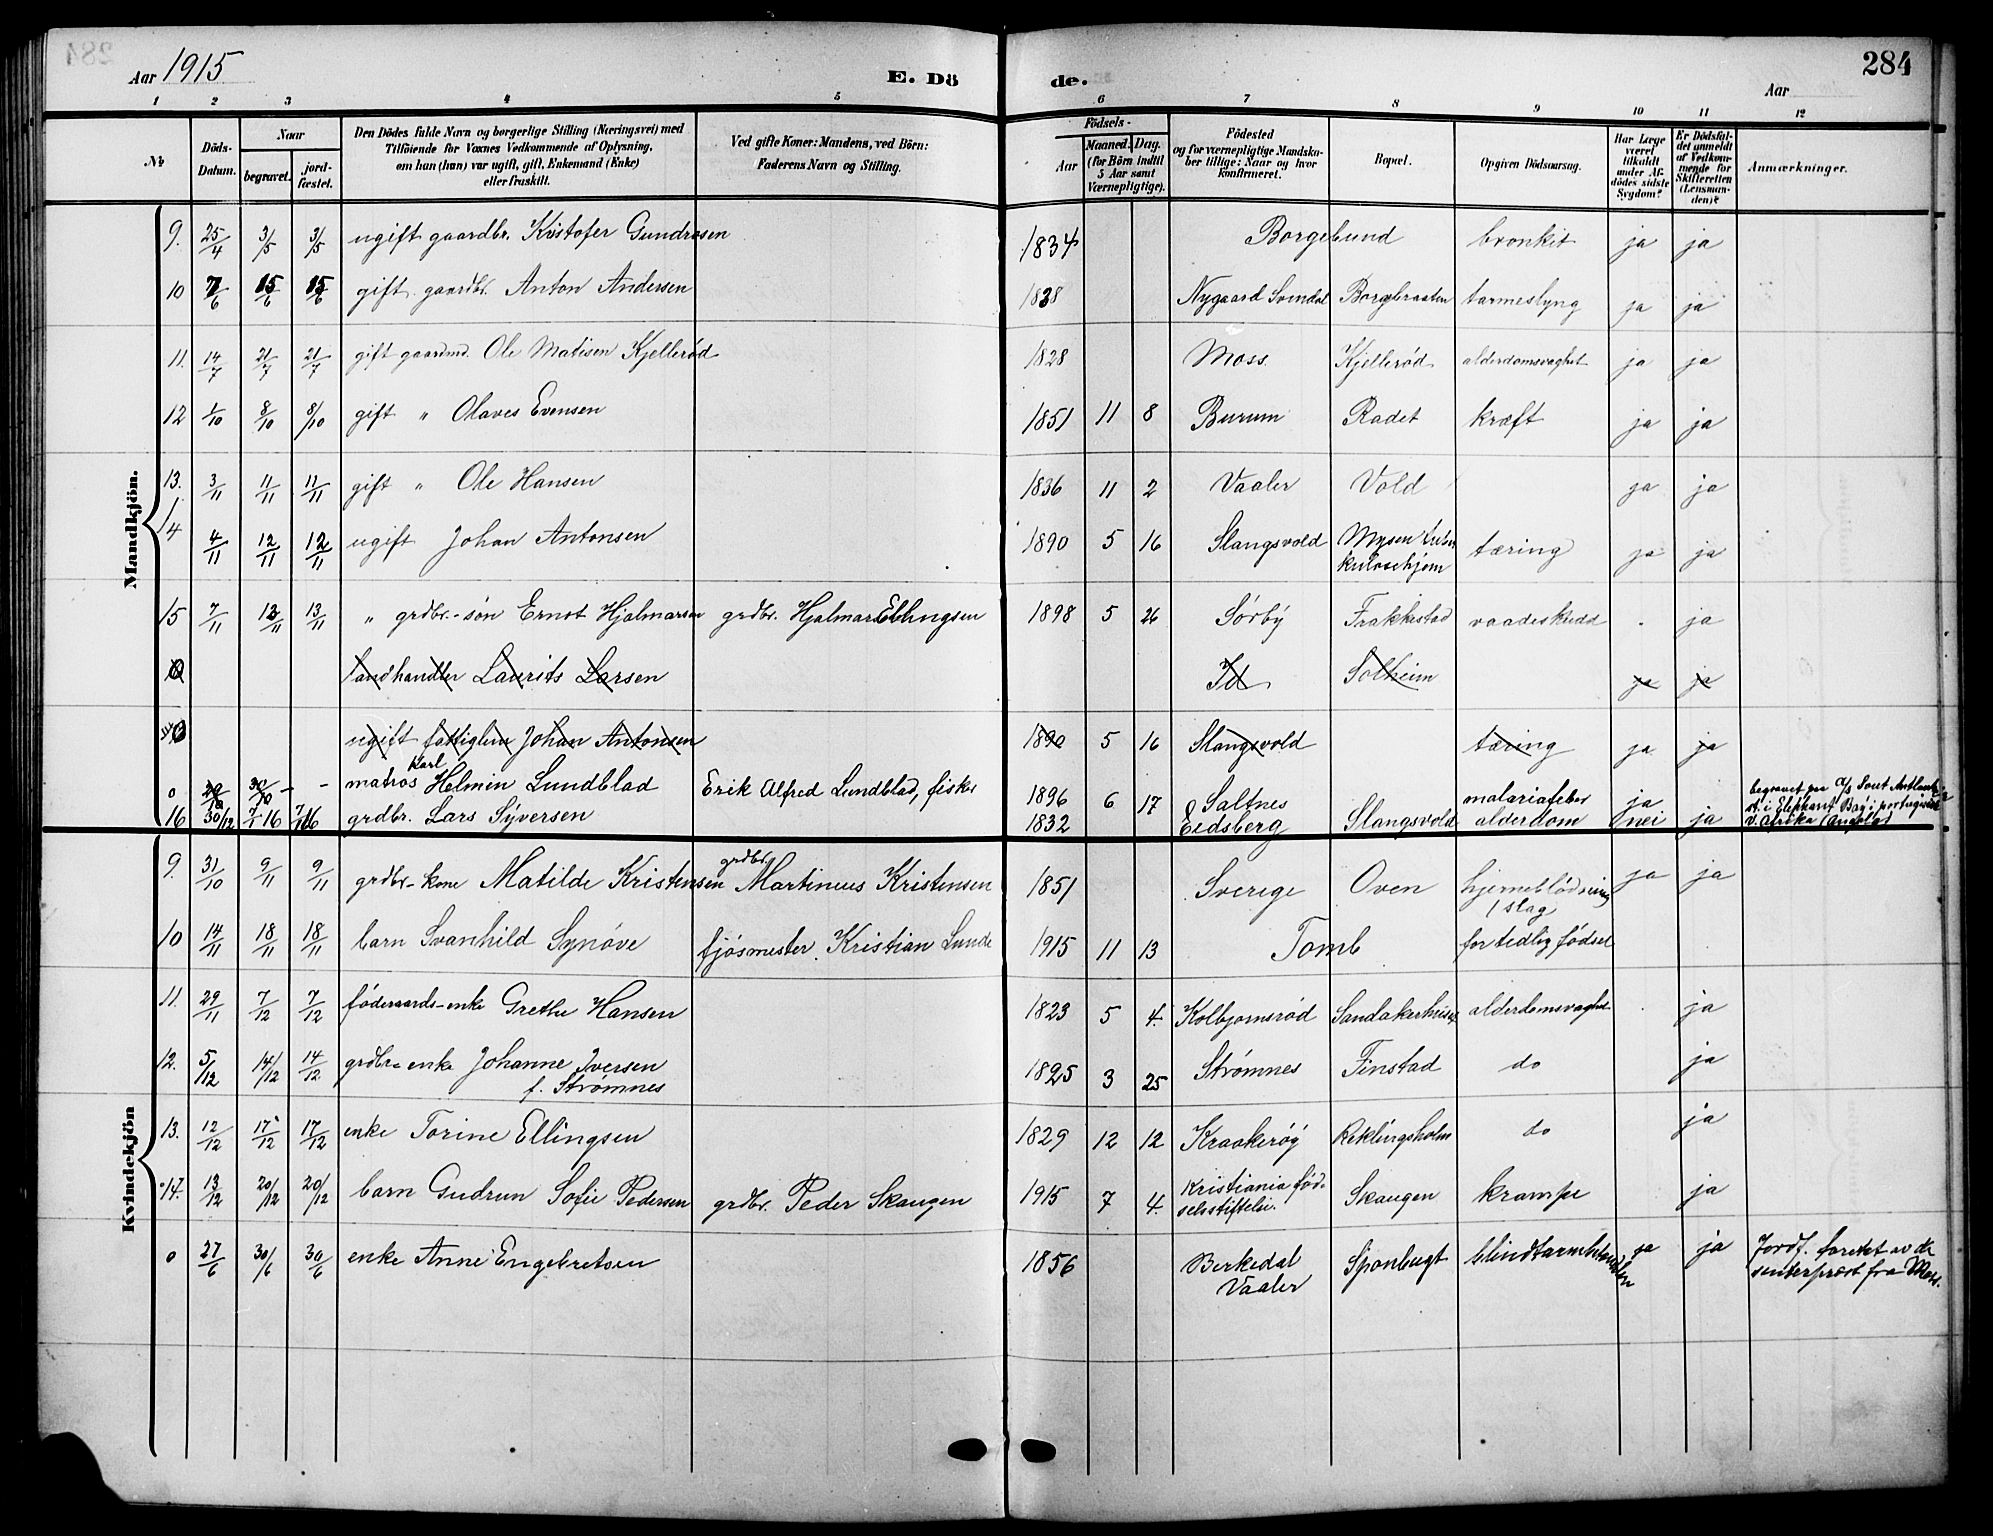 Aar 1915 E. Dö de. Aar 284
1 2 3 4 5 6 7 8 9 10 11 12
No Döds-Datum. Naar begravet. jord-fæstet. Den Dödes fulde Navn og borgerlige Stilling (Næringsvei) med Tilföiende for Voxnes Vedkommende af Oplysning, om hun (han) var ugift, gift, Enkemand (Enke) eller fraskilt. Ved gifte Koner: Mandens, ved Börn: Faderens Navn og Stilling. Födsels- Aar Maaned. Dag. (for Börn indtil 5 Aar samt Værnepligtige). Födested og for værnepligtige Mandskaber tillige: Naar og hvor konfirmeret. Bopæl. Opgiven Dödsaarsag. Har Læge været tilkaldt under Afdödes sidste Sygdom? Er Dödsfaldet anmeldt af Vedkommende for Skifteretten (Lensmanden)? Anmærkninger.
Mandkjön.
9. 25/4 3/5 3/5 ugift gaardbr. Kristofer Gundrosen 1834 Borgebund bronkit ja ja
10 7/6 15/6 15/6 gift gaardbr. Anton Andersen 1838 Nygaard Svindal Borgebraaten tarmeslyng ja ja
11. 14/7 21/7 21/7 gift gaardmd. Ole Matisen Kjellerød 1828 Moss. Kjellerød alderdomsvaghet ja ja
12 1/10 8/10 8/10 gift " Olaves Evensen 1851 11 8 Burum Radet kræft ja ja
13. 3/11 11/11 11/11 gift " Ole Hansen 1836 11 2 Vaaler Vold ja ja
14 4/11 12/11 12/11 ugift Johan Antonsen 1890 5 16 Slangsvold Mysen tuberkulosehjem tæring ja ja
15 7/11 13/11 13/11 " grdbr.-søn Ernst Hjalmarsen grdbr. Hjalmar Ellingsen 1898 5 26 Sørby Frakkestad vaadeskudd . ja
landhandler Laurits Larsen Id Solheim ja ja
ugift fattiglem Johan Antonsen 1890 5 16 Slangsvold tæring ja ja
0 29/10 30/10 - - matros Karl Helmin Lundblad Erik Alfred Lundblad, fisker 1896 6 17 Saltnes malariafeber ja begravet paa Sout Antlantst. i Elephant Bay i portugisisk V. Afrika (Angola)
16 30/12 7/1 16 7/1 16 grdbr. Lars Syversen 1832 Eidsberg Slangsvold alderdom nei ja
Kvindekjön
9. 31/10 9/11 9/11 grdbr-kone Matilde Kristensen grdbr. Martinius Kristensen 1851 Sverige Oven hjerneblødning / slag ja ja
10 14/11 18/11 18/11 barn Svanhild Synøve fjøsmester. Kristian Lunde 1915 11 13 Tomb for tidlig fødsel
11. 29/11 7/12 7/12 føderaads-enke Grethe Hansen 1823 5 4. Kolbjornsrød Sandakerhuset alderdomsvaghet . ja
12. 5/12 14/12 14/12 grdbr-enke Johanne Iversen f. Strømnes 1825 3 25 Strømnes Finstad do ja
13. 12/12 17/12 17/12 enke Torine Ellingsen 1829 12 12 Kraakerøy Reklingsholm do ja
14. 13/12 20/12 20/12 barn Gudrun Sofie Pedersen grdbr. Peder Skaugen 1915 7 4. Kristiania fødselsstiftelse. Skaugen krampe ja
0 27/6 30/6 30/6 enke Anne Engebretsen 1856 Birkedal Vaaler Sponbugt blindtarmbetændelse ja ja Jordf. foretet av residenterpræst fra Moss.